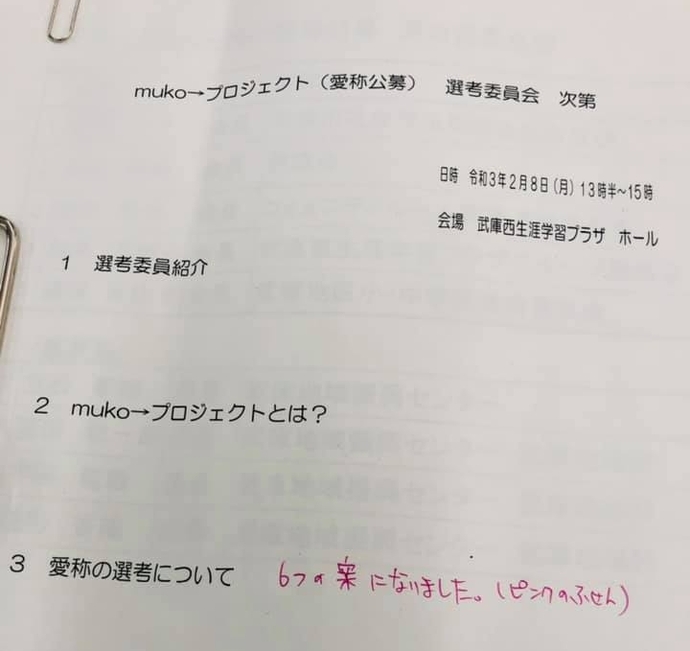 muko→プロジェクト（愛称公募）　選考委員会　次第
日時　令和3年2月8日（月）13時半～15時
会場　武庫西生涯学習プラザ　ホール
1　選考委員紹介
2　muko→プロジェクトとは？
3　愛称の選考について　6つの案になりました。（ピンクのふせん）